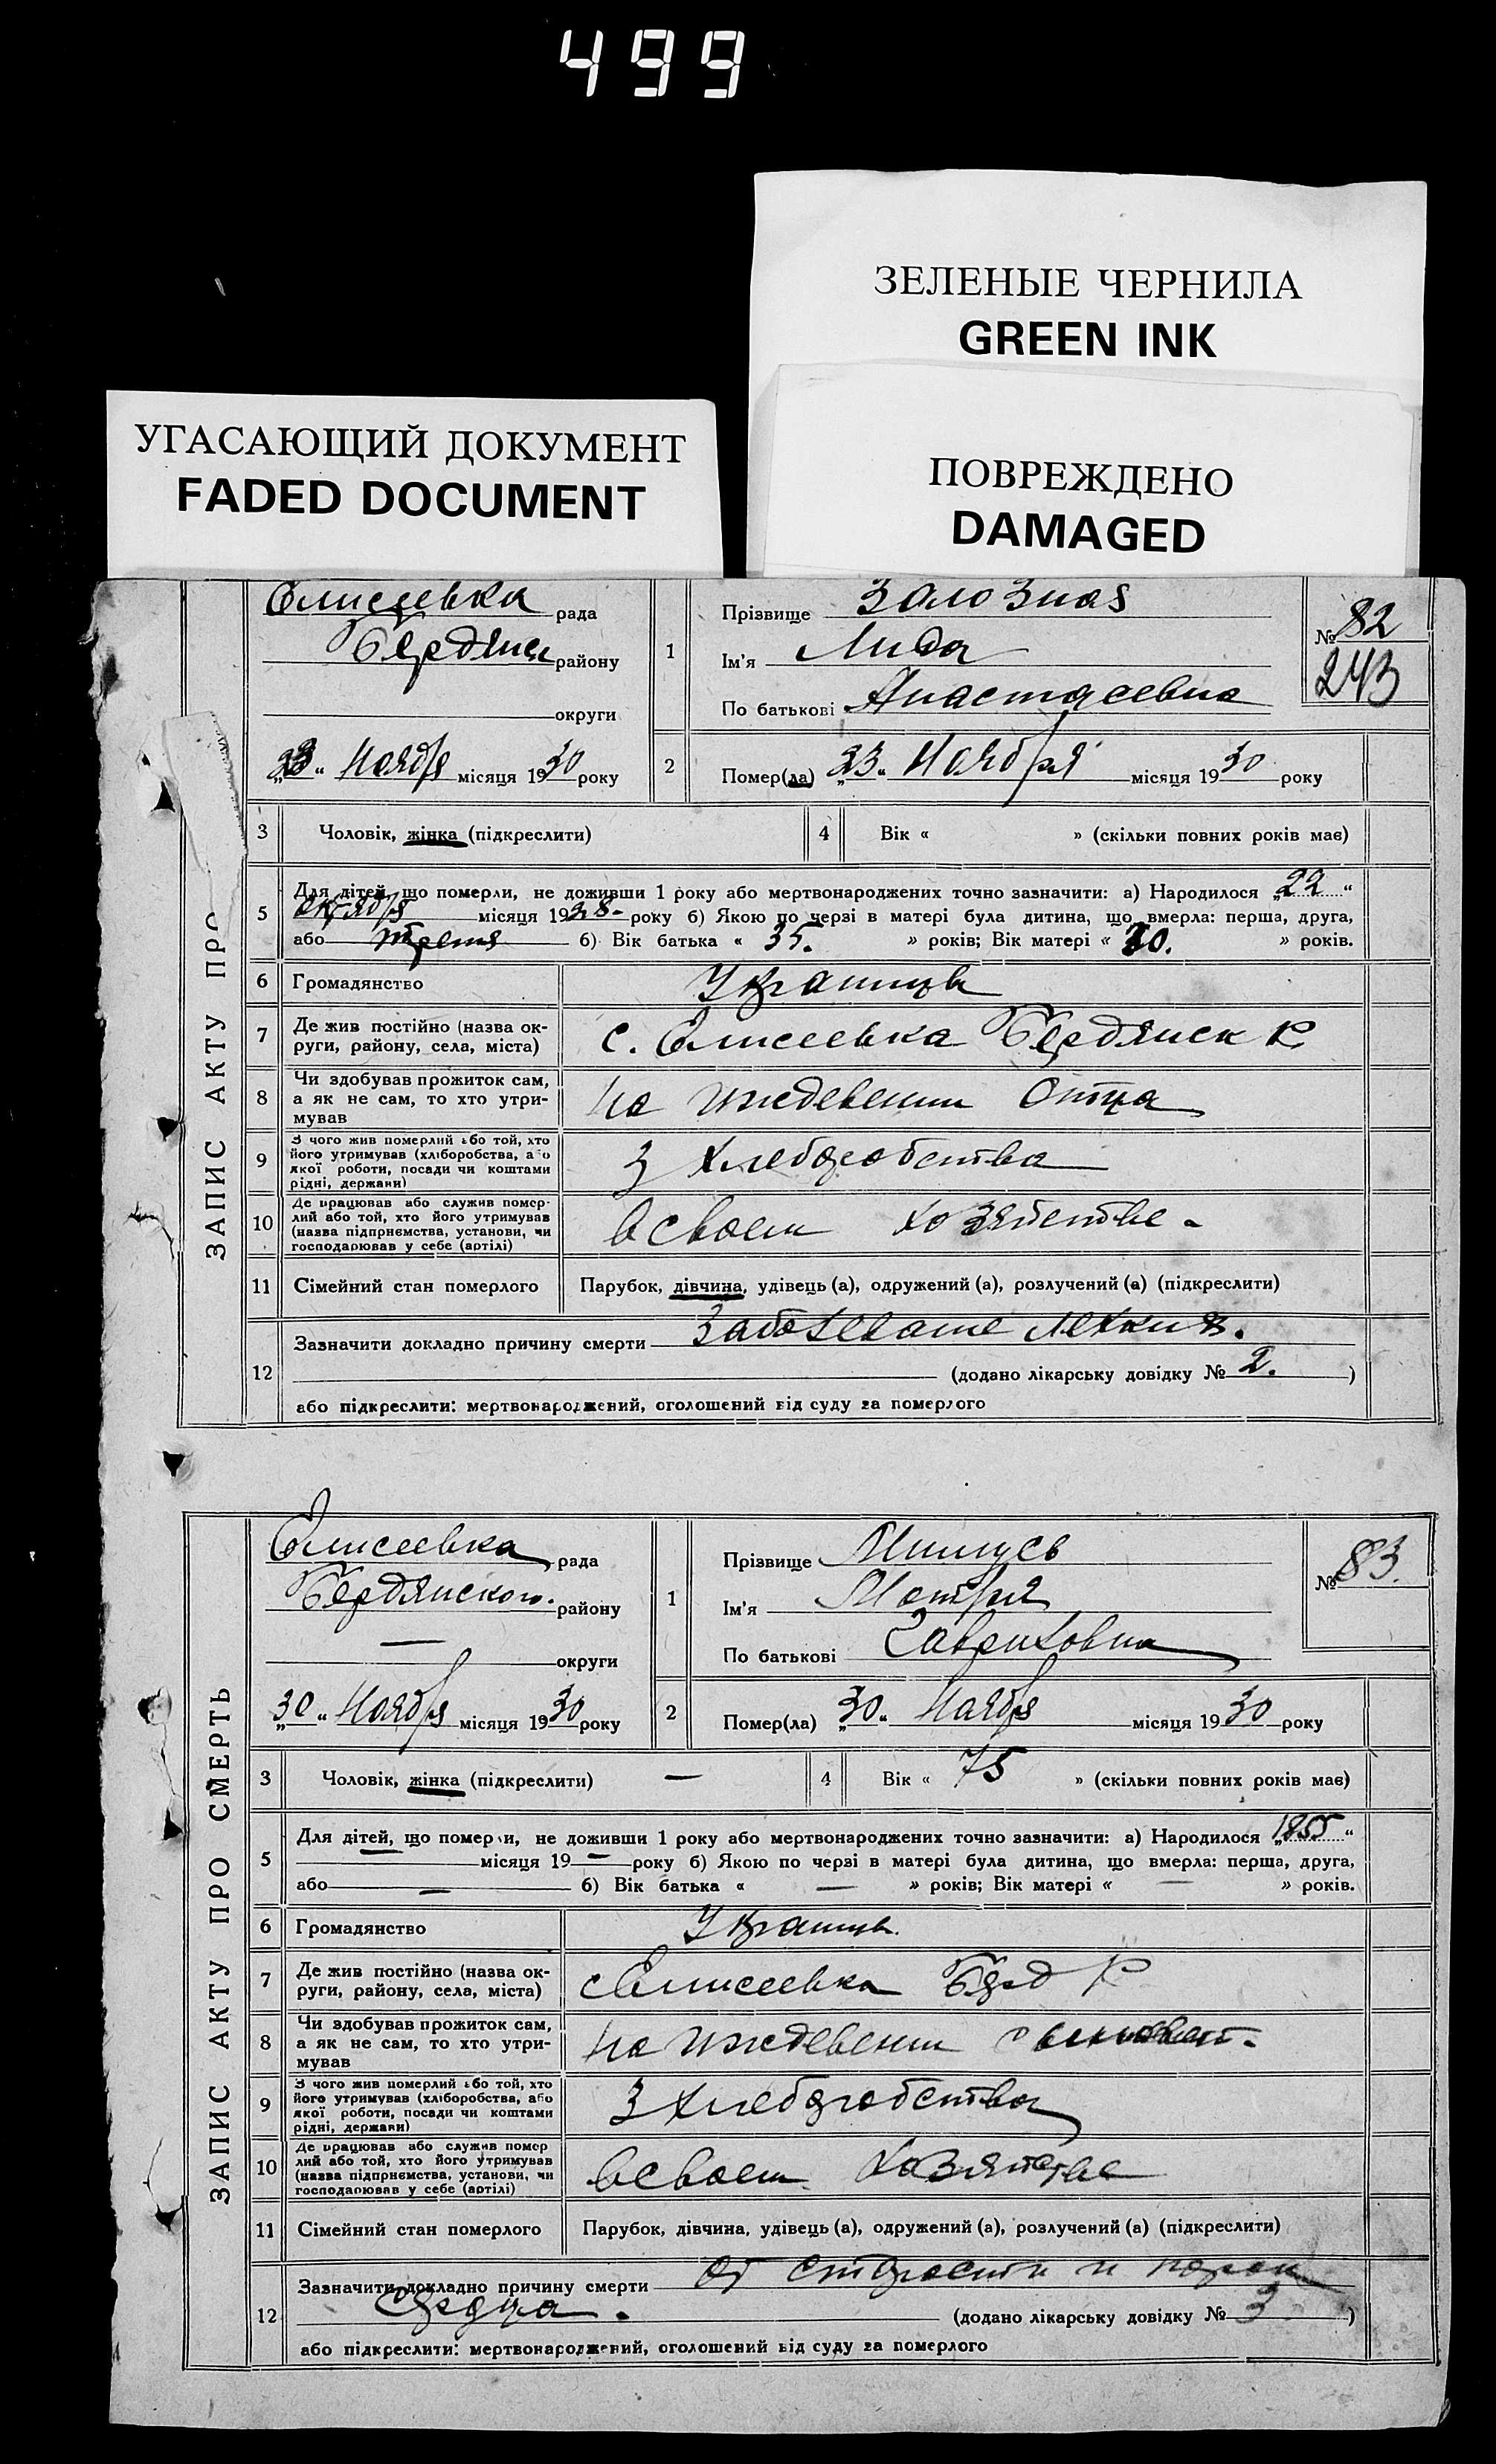 499
ЗЕЛЕНЫЕ ЧЕРНИЛА
GREEN INK
УГАСАЮЩИЙ ДОКУМЕНТ
FADED DOCUMENT
ПОВРЕЖДЕНО
DAMAGED
ЗАПИС АКТУ ПРО
Елисеевка рада
Бердянск району
округи
„23“ Ноября місяця 1930 року
1
Прізвище Залозная
Ім'я Лида
По батькові Анастасевна
№ 82
243
2
Помер(ла) „23“ Ноября місяця 1930 року
3 Чоловік, жінка (підкреслити)
4 Вік « » (скільки повних років має)
5
Для дітей, що померли, не доживши 1 року або мертвонароджених точно зазначити: а) Народилося „22“
октября місяця 1928 року б) Якою по черзі в матері була дитина, що вмерла: перша, друга,
або третя б) Вік батька « 35. » років; Вік матері « 30. » років.
6 Громадянство Украинць
7 Де жив постійно (назва округи, району, села, міста) с. Елисеевка Бердянск р
8 Чи здобував прожиток сам, а як не сам, то хто утримував На иждевении Отца
9 З чого жив померлий або той, хто його утримував (хліборобства, або якої роботи, посади чи коштами рідні, держави) З Хлеборобства
10 Де працював або служив померлий або той, хто його утримував (назва підприємства, установи, чи господарював у себе (артілі) в своем хозяйстве
11 Сімейний стан померлого Парубок, дівчина, удівець (а), одружений (а), розлучений (а) (підкреслити)
12
Зазначити докладно причину смерти Заболевание легких.
(додано лікарську довідку № 2. )
або підкреслити: мертвонароджений, оголошений від суду за померлого
ЗАПИС АКТУ ПРО СМЕРТЬ
Елисеевка рада
Бердянского району
— округи
„30“ Ноября місяця 1930 року
1
Прізвище
Ім'я Мотря
По батькові Гавриловна
№ 83.
2
Помер(ла) „30“ Ноября місяця 1930 року
3 Чоловік, жінка (підкреслити) —
4 Вік « 75 » (скільки повних років має)
5
Для дітей, що померли, не доживши 1 року або мертвонароджених точно зазначити: а) Народилося „1855“
— місяця 19 — року б) Якою по черзі в матері була дитина, що вмерла: перша, друга,
або — б) Вік батька « — » років; Вік матері « — » років.
6 Громадянство Украинць
7 Де жив постійно (назва округи, району, села, міста) с Елисеевка Берд Р
8 Чи здобував прожиток сам, а як не сам, то хто утримував На иждевении
9 З чого жив померлий або той, хто його утримував (хліборобства, або якої роботи, посади чи коштами рідні, держави) З Хлеборобства
10 Де працював або служив померлий або той, хто його утримував (назва підприємства, установи, чи господарював у себе (артілі) в своем хозяйстве
11 Сімейний стан померлого Парубок, дівчина, удівець (а), одружений (а), розлучений (а) (підкреслити)
12
Зазначити докладно причину смерти от старости и порок
сердца.
(додано лікарську довідку № 3 )
або підкреслити: мертвонароджений, оголошений від суду за померлого